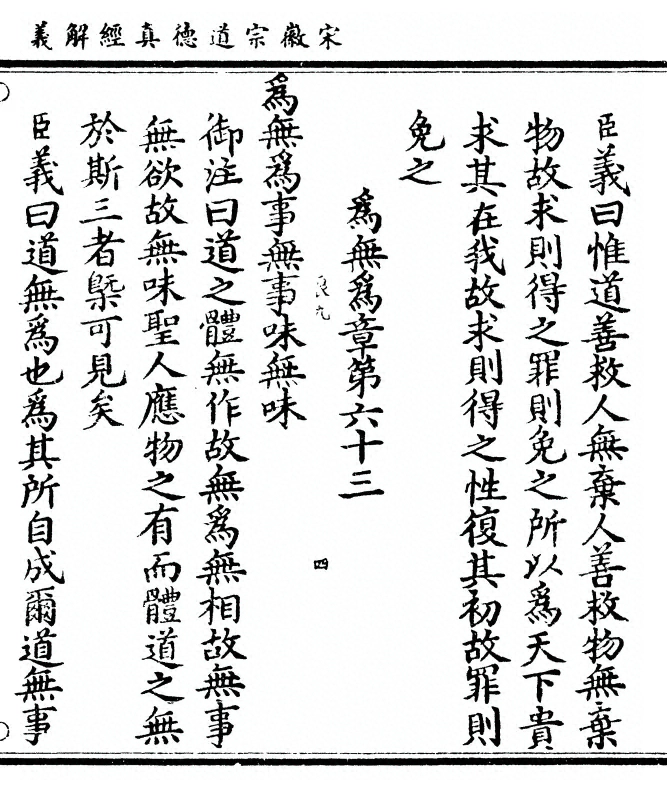 宋徽宗道德真經解義
臣義曰惟道善救人無棄人善救物無棄
物故求則得之罪則免之所以爲天下貴
求其在我故求則得之性復其初故罪則
免之
爲無爲章第六十三
良九
四
爲無爲事無事味無味
御注曰道之體無作故無爲無相故無事
無欲故無味聖人應物之有而體道之無
於斯三者槩可見矣
臣義曰道無爲也爲其所自成爾道無事